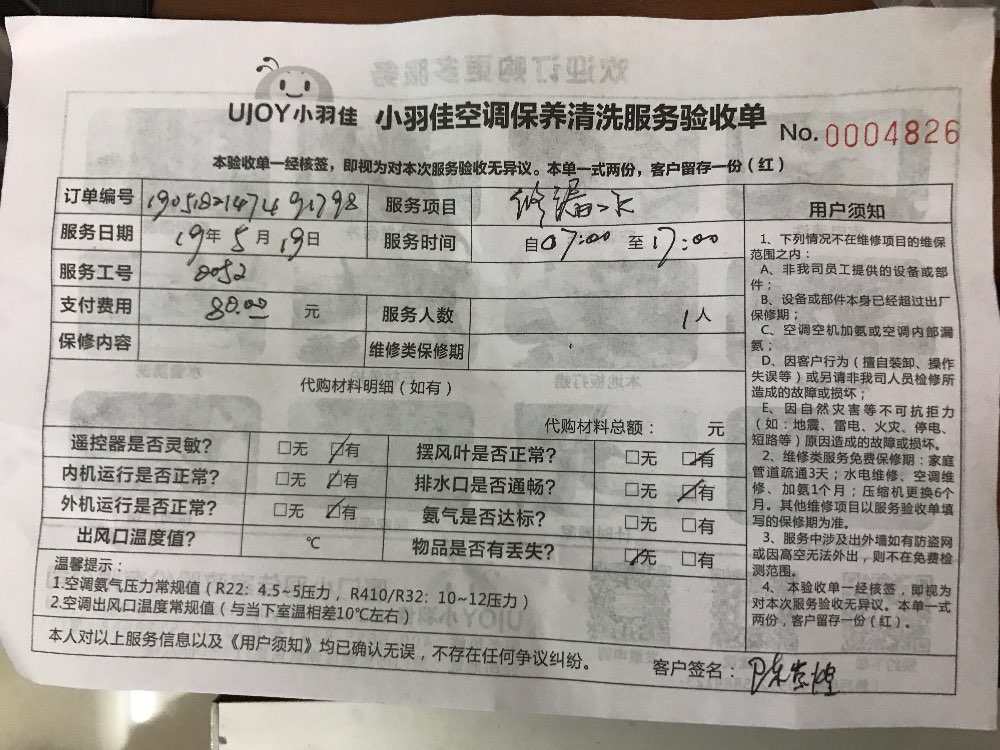 UJOY小羽佳 小羽佳空调保养清洗服务验收单 No. 0004826
本验收单一经核签，即视为对本次服务验收无异议。本单一式两份，客户留存一份（红）
订单编号 190518214749798 服务项目 修漏水
服务日期 19年5月19日 服务时间 自07:00至17:00
服务工号 0052
支付费用 80.00 元 服务人数 1人
保修内容 维修类保修期
代购材料明细（如有）
代购材料总额： 元
遥控器是否灵敏? □无 ☑有 摆风叶是否正常? □无 ☑有
内机运行是否正常? □无 ☑有 排水口是否通畅? □无 ☑有
外机运行是否正常? □无 ☑有 氨气是否达标? □无 □有
出风口温度值? ℃ 物品是否有丢失? ☑无 □有
温馨提示：
1.空调氨气压力常规值（R22：4.5~5压力，R410/R32：10~12压力）
2.空调出风口温度常规值（与当下室温相差10℃左右）
本人对以上服务信息以及《用户须知》均已确认无误，不存在任何争议纠纷。
客户签名：
用户须知
1、下列情况不在维修项目的维保
范围之内：
A、非我司员工提供的设备或部
件；
B、设备或部件本身已经超过出厂
保修期；
C、空调空机加氨或空调内部漏
氨；
D、因客户行为（擅自装卸、操作
失误等）或另请非我司人员检修所
造成的故障或损坏；
E、因自然灾害等不可抗拒力
（如：地震、雷电、火灾、停电、
短路等）原因造成的故障或损坏。
2、维修类服务免费保修期：家庭
管道疏通3天；水电维修、空调维
修、加氨1个月；压缩机更换6个
月。其他维修项目以服务验收单填
写的保修期为准。
3、服务中涉及出外墙如有防盗网
或因高空无法外出，则不在免费检
测范围。
4、本验收单一经核签，即视为
对本次服务验收无异议。本单一式
两份，客户留存一份（红）。